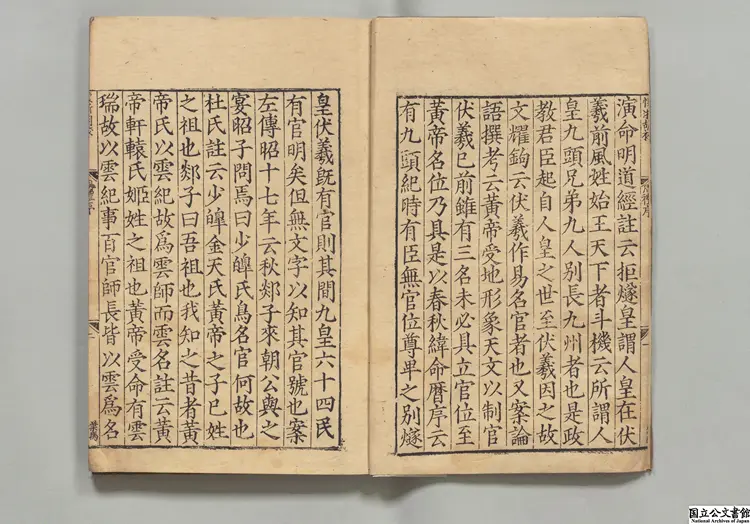 演命明道經註云拒燧皇謂人皇在伏
羲前風姓始王天下者斗機云所謂人
皇九頭兄弟九人別長九州者也是政
教君臣起自人皇之世至伏羲因之故
文耀鉤云伏羲作易名官者也又案論
語撰考云黃帝受地形象天文以制官
伏羲已前雖有三名未必具立官位至
黃帝名位乃具是以春秋緯命曆序云
有九頭紀時有臣無官位尊卑之別燧
皇伏羲既有官則其間九皇六十四民
有官明矣但無文字以知其官號也案
左傳昭十七年云秋郯子來朝公與之
宴昭子問焉曰少皞氏鳥名官何故也
杜氏註云少皞金天氏黃帝之子已姓
之祖也郯子曰吾祖也我知之昔者黃
帝氏以雲紀故爲雲師而雲名註云黃
帝軒轅氏姬姓之祖也黃帝受命有雲
瑞故以雲紀事百官師長皆以雲爲名
国立公文書館
National Archives of Japan